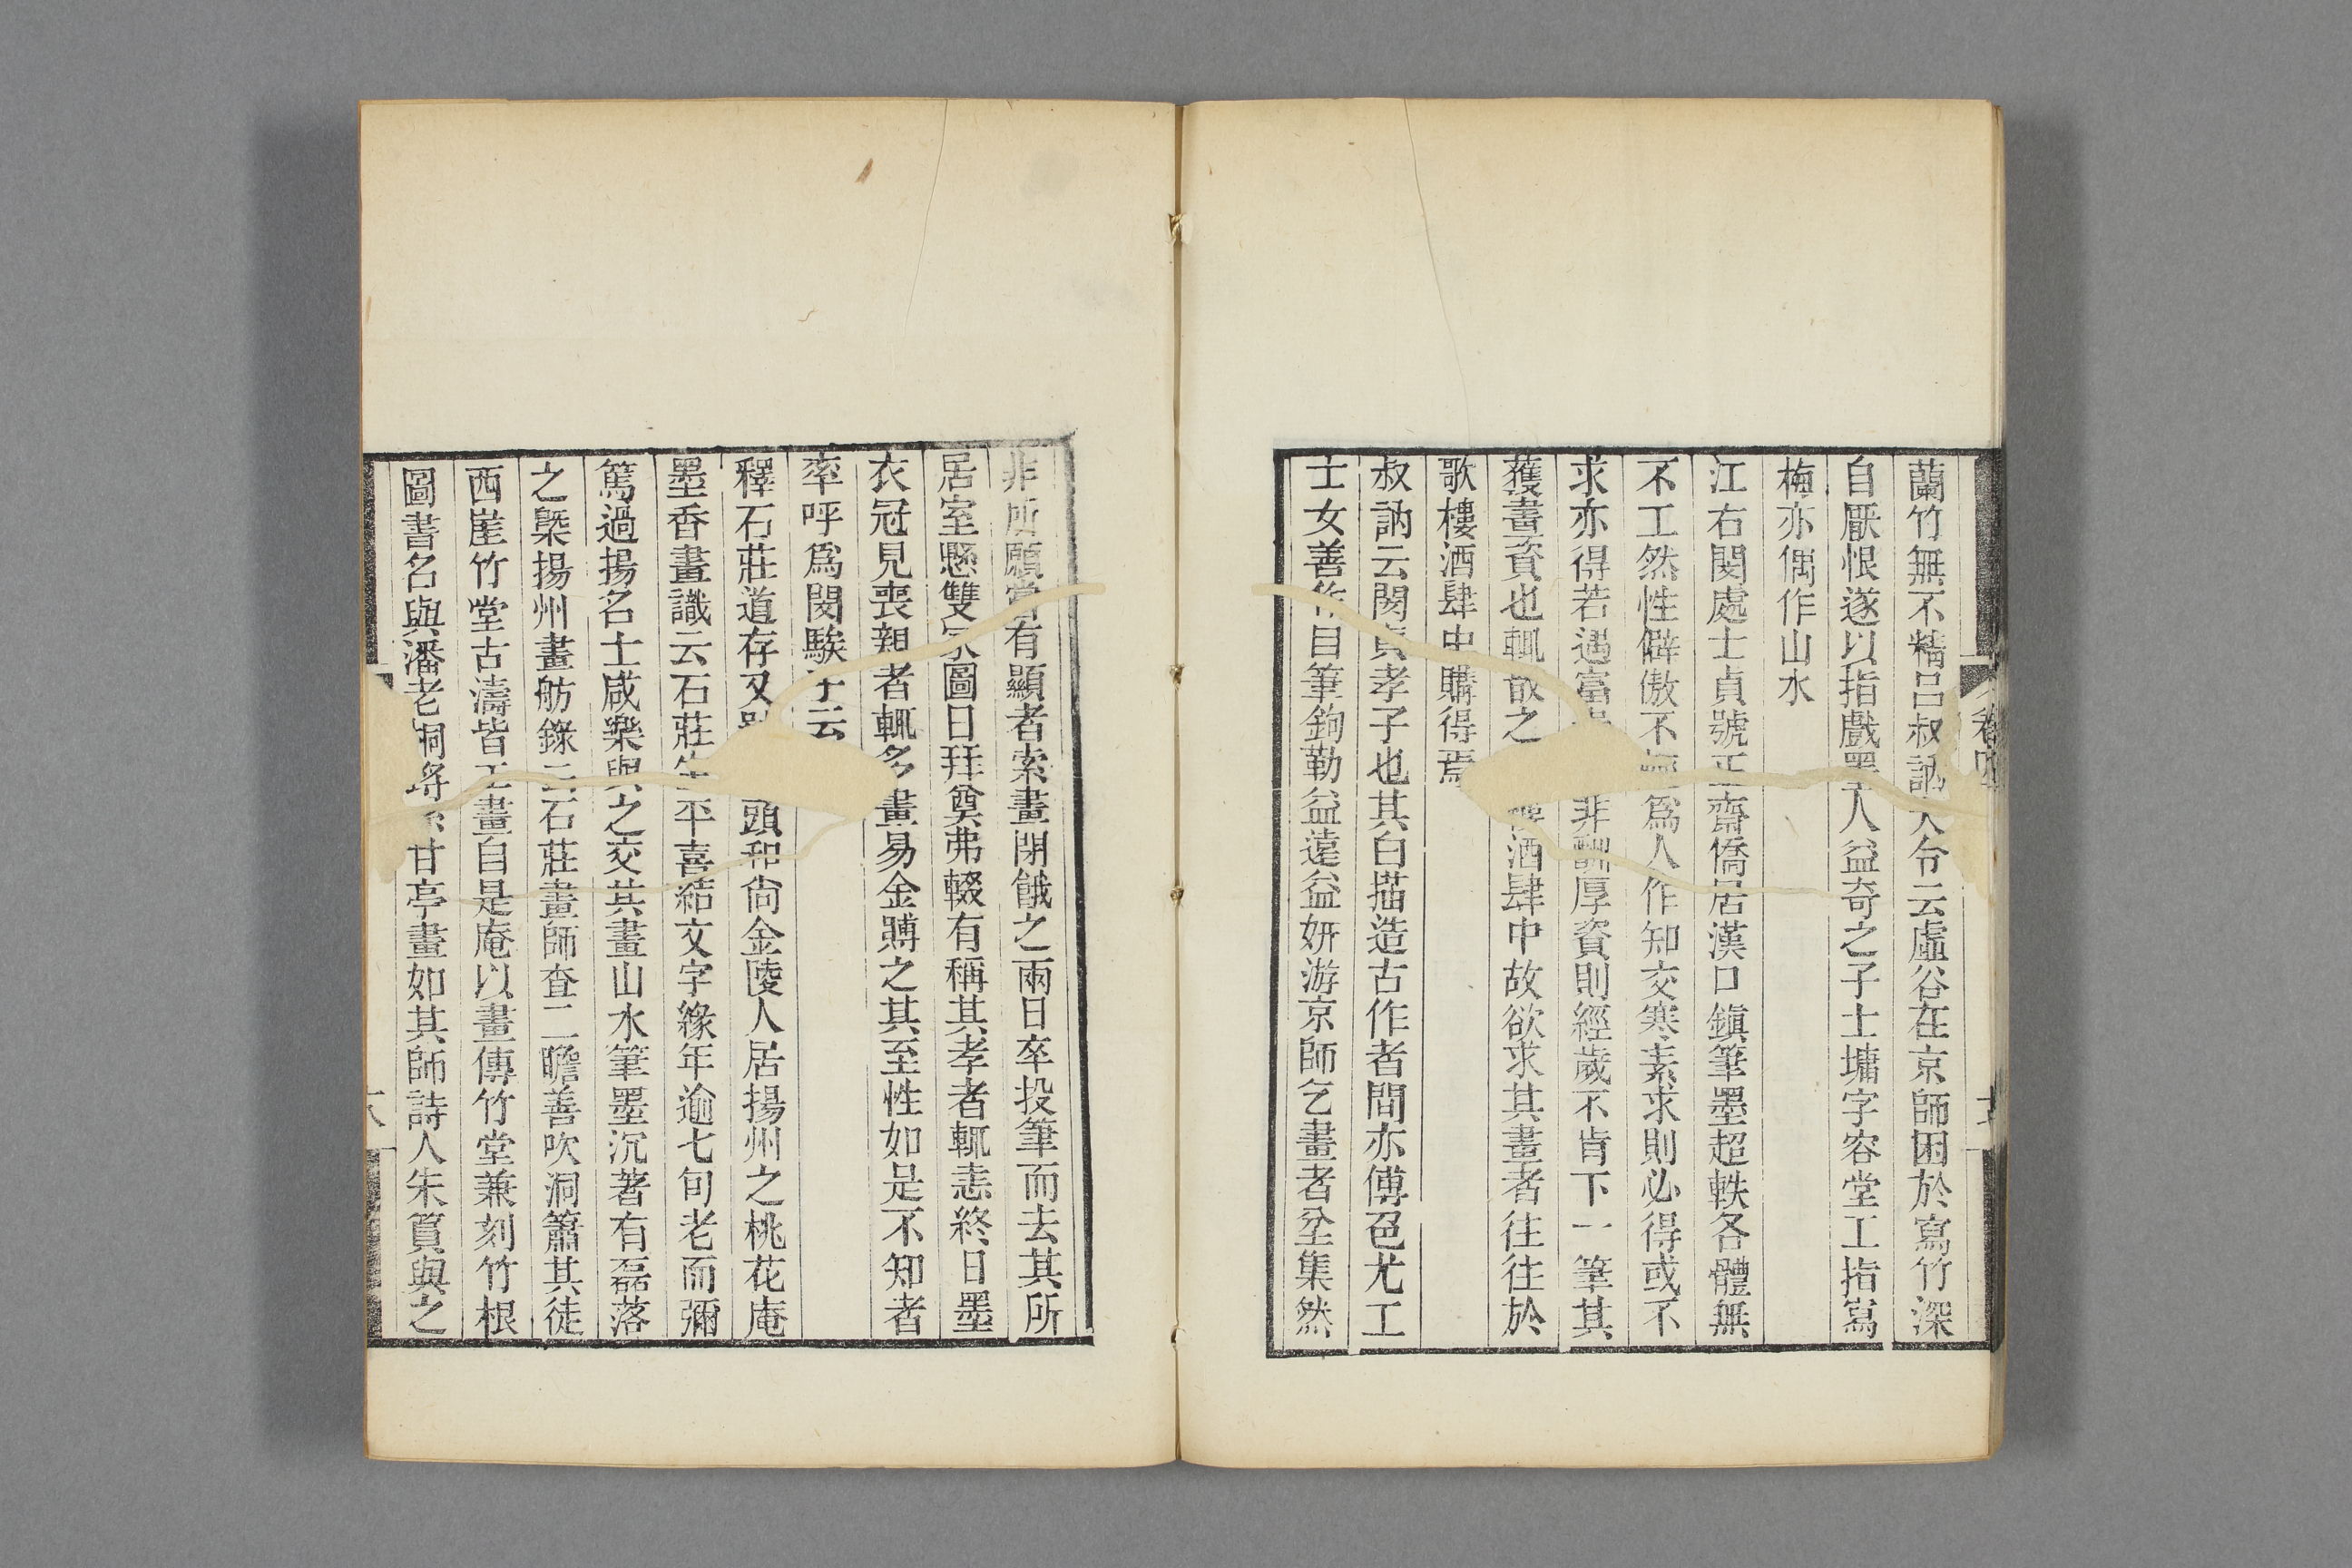 蘭竹無不精吕叔訥大令云虛谷在京師困於寫竹深
自厭恨遂以指戲墨人益奇之子土墉字容堂工指寫
梅亦偶作山水
江右閔處士貞號正齋僑居漢口鎮筆墨超軼各體無
不工然性僻傲不輕爲人作知交寒素求則必得或不
求亦得若遇富非酬厚資則經歲不肯下一筆其
獲畫資也輒散之樓酒肆中故欲求其畫者往往於
歌樓酒肆中購得焉
叔訥云閔貞孝子也其白描造古作者間亦傅色尤工
士女善作自筆鉤勒益遠益妍游京師乞畫者坌集然
非所願嘗有顯者索畫閉餓之兩日卒投筆而去其所
居室懸雙影圖日拜奠弗輟有稱其孝者輒恚終日墨
衣冠見喪親者輒多畫易金賻之其至性如是不知者
率呼爲閔騃子云
釋石莊道存又頭和尙金陵人居揚州之桃花庵
墨香畫識云石莊生平喜結文字緣年逾七旬老而彌
篤過揚名士咸樂與之交其畫山水筆墨沉著有磊落
之槩揚州畫舫錄云石莊畫師查二瞻善吹洞簫其徒
西崖竹堂古濤皆工畫自是庵以畫傳竹堂兼刻竹根
圖書名與潘老桐將甘亭畫如其師詩人朱篔與之